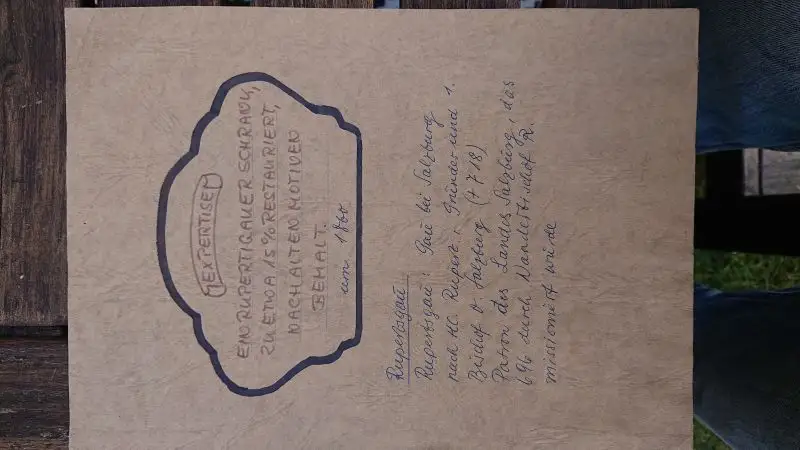 EXPERTISE
EIN RUPERTIGAUER SCHRANK,
ZU ETWA 15% RESTAURIERT,
NACH ALTEN MOTIVEN
BEMALT.
um 1800
Rupertsgau
Rupertsgau: Gau bei Salzburg
nach Hl. Rupert, Gründer und 1.
Bischof v. Salzburg (+ 718)
Patron des Landes Salzburg, das
696 durch Wanderbischof R.
missioniert würde